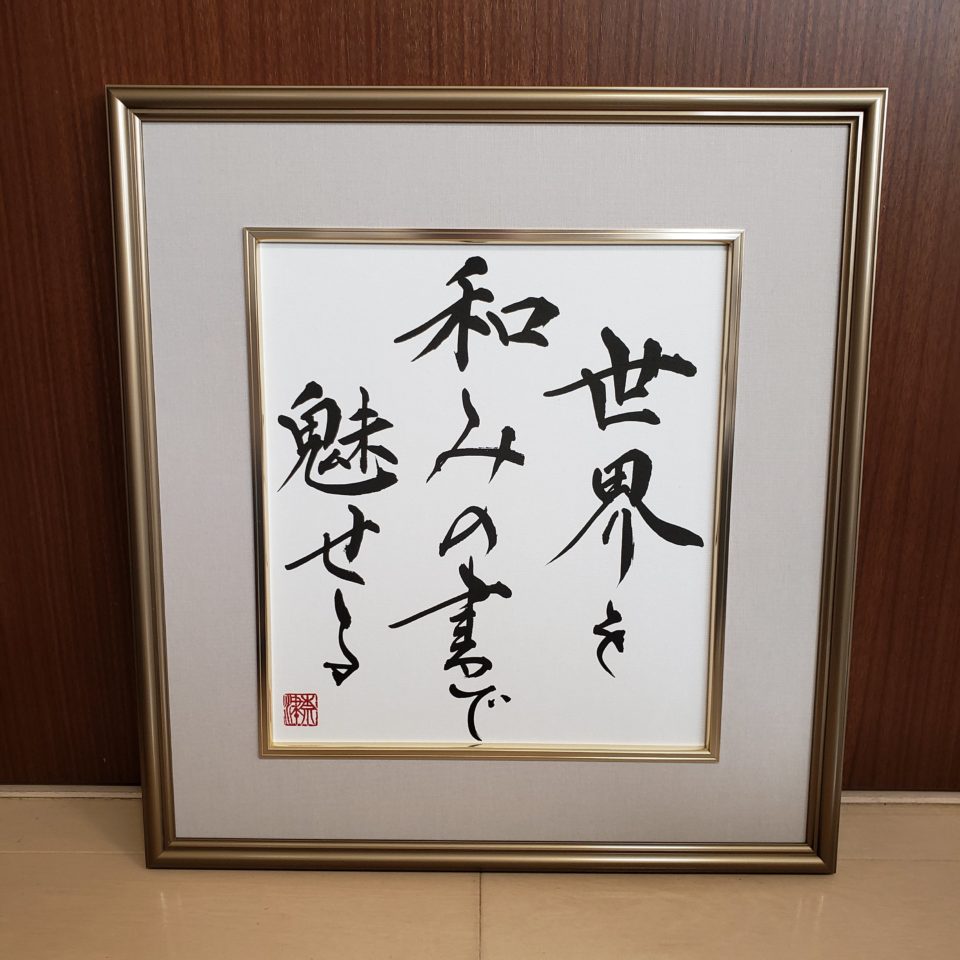 世界を
和みの書で
魅せる